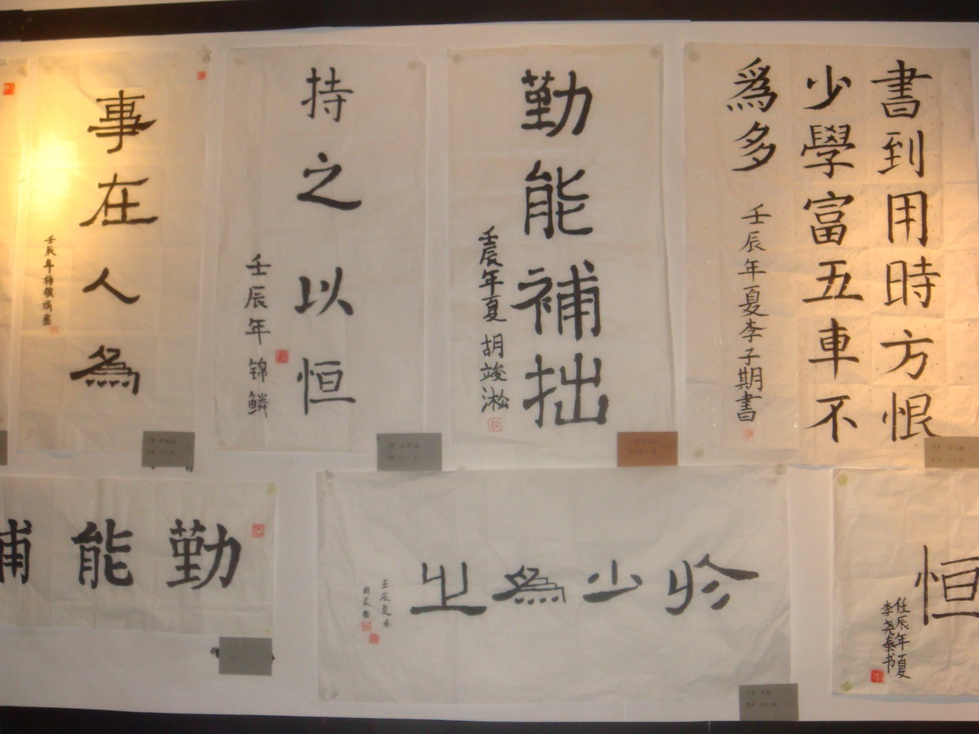 事在人為
持之以恒
壬辰年锦鳞
勤能補拙
壬辰年夏胡竣淞
書到用時方恨
少學富五車不
爲多
壬辰年夏李子期書
勤能補
少為之
壬辰夏
恒
任辰年夏
李尧秦书